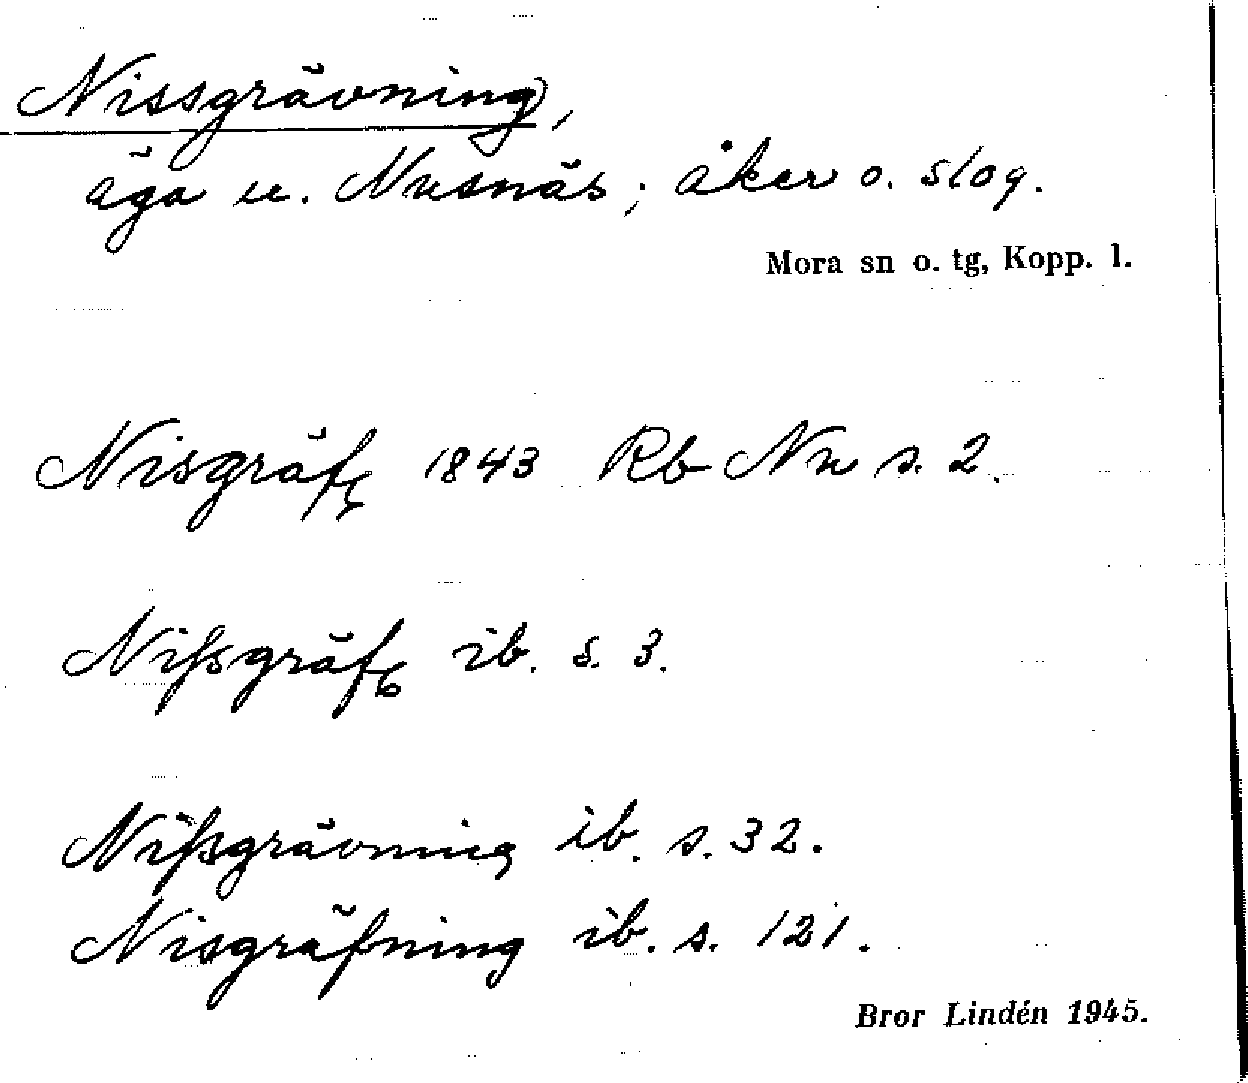 Nissgrävning,
äga u. Nusnäs; åker o. slog.
Mora sn o. tg, Kopp. l.
Nisgräfg 1843 Rb Nu s. 2.
Nißgräfg ib. s. 3.
Nißgrävning ib. s. 32.
Nisgräfning ib. s. 121.
Bror Lindén 1945.